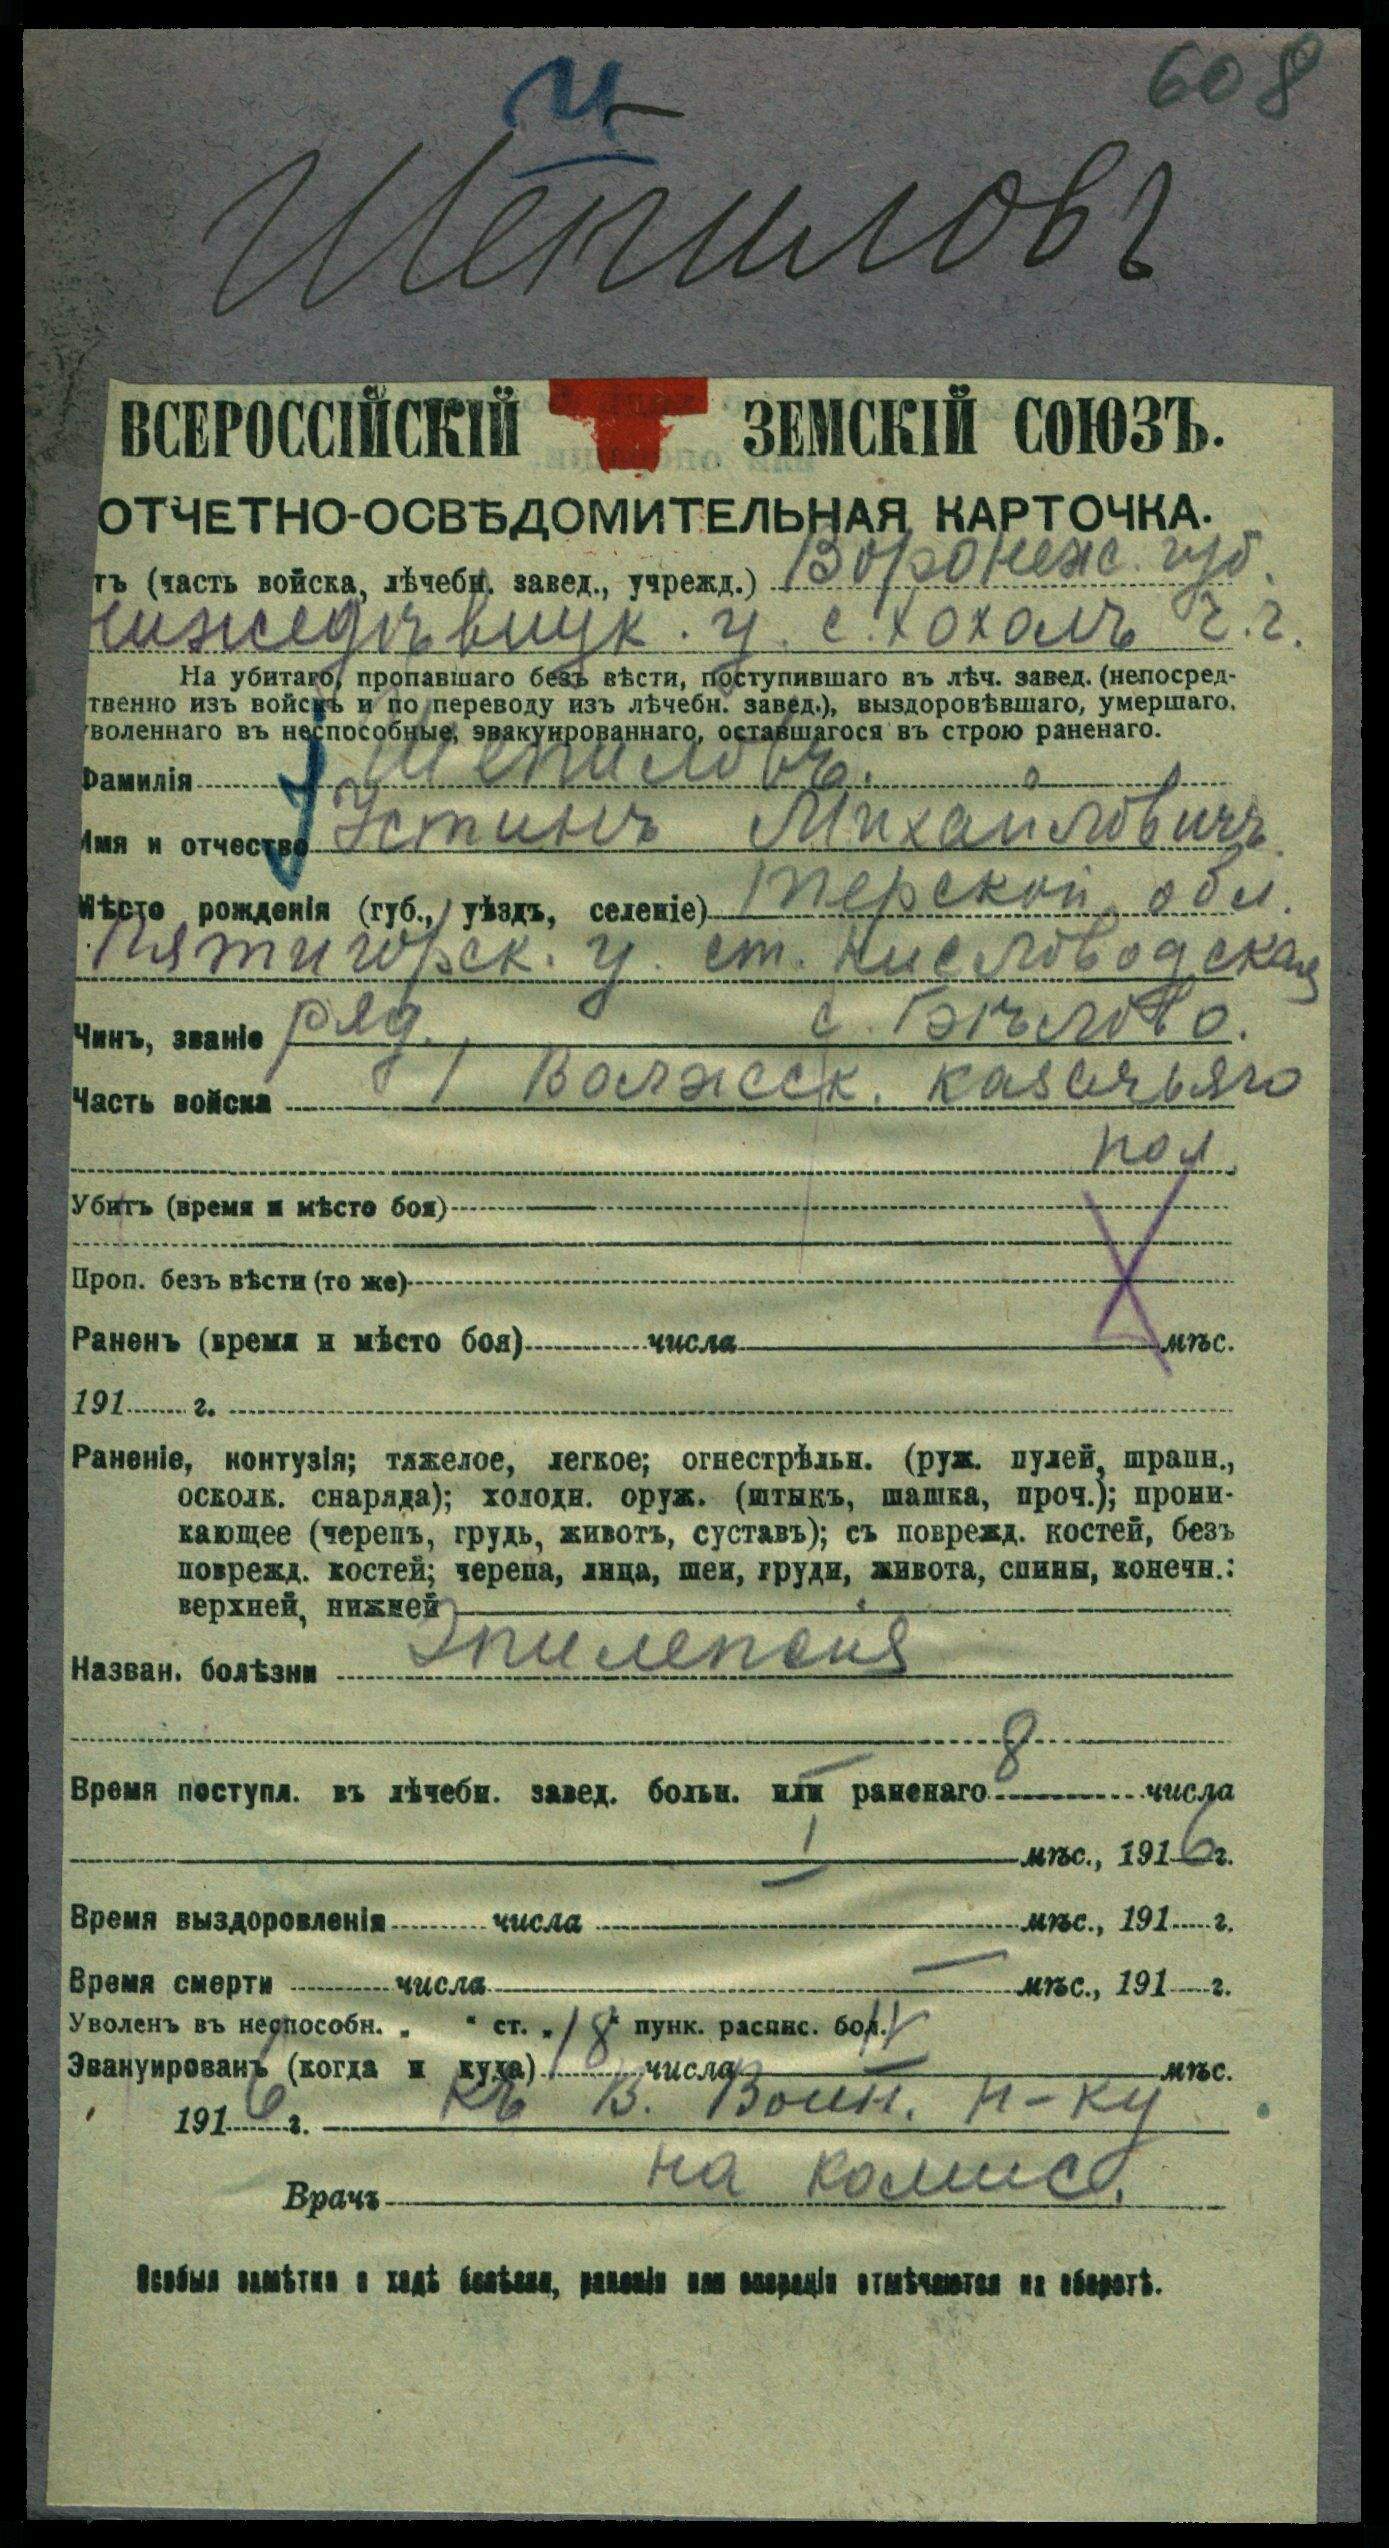 608
Шепиловъ
ВСЕРОССІЙСКІЙ ЗЕМСКІЙ СОЮЗЪ.
ОТЧЕТНО-ОСВѢДОМИТЕЛЬНАЯ КАРТОЧКА.
тъ (часть войска, лѣчебн. завед., учрежд.) Воронеж. губ.
нижедѣвицк. у. с. Хохолъ
На убитаго, пропавшаго безъ вѣсти, поступившаго въ лѣч. завед. (непосред-
твенно изъ войскъ и по переводу изъ лѣчебн. завед.), выздоровѣвшаго, умершаго,
воленнаго въ неспособные, эвакуированнаго, оставшагося въ строю раненаго.
Фамилія Шепиловъ.
Имя и отчество Устинъ Михайловичъ
Мѣсто рожденія (губ., уѣздъ, селеніе) Терской обл.
Пятигорск. у. ст. Кисловодская
Чинъ, званіе ряд. с.
Часть войска 1 Волжск. казачьяго
пол.
Убитъ (время и мѣсто боя)
Проп. безъ вѣсти (то же)
Раненъ (время и мѣсто боя) числа мѣс.
191 г.
Раненіе, контузія; тяжелое, легкое; огнестрѣльн. (руж. пулей, шрапн.,
осколк. снаряда); холодн. оруж. (штыкъ, шашка, проч.); прони-
кающее (черепъ, грудь, животъ, суставъ); съ поврежд. костей, безъ
поврежд. костей; черепа, лица, шеи, груди, живота, спины, конечн.:
верхней, нижней
Назван. болѣзни Эпилепсия
Время поступл. въ лѣчебн. завед. больн. или раненаго 8 числа
I мѣс., 1916 г.
Время выздоровленія числа мѣс., 191 г.
Время смерти числа мѣс., 191 г.
Уволенъ въ неспособн. „ “ ст. „ “ пунк. распис. бол.
Эвакуированъ (когда и куда) 18 числа мѣс.
1916 г. къ В. Воин. Н-ку
на комисс.
Врачъ
Особыя замѣтки о ходѣ болѣзни, раненія или операціи отмѣчаются на оборотѣ.